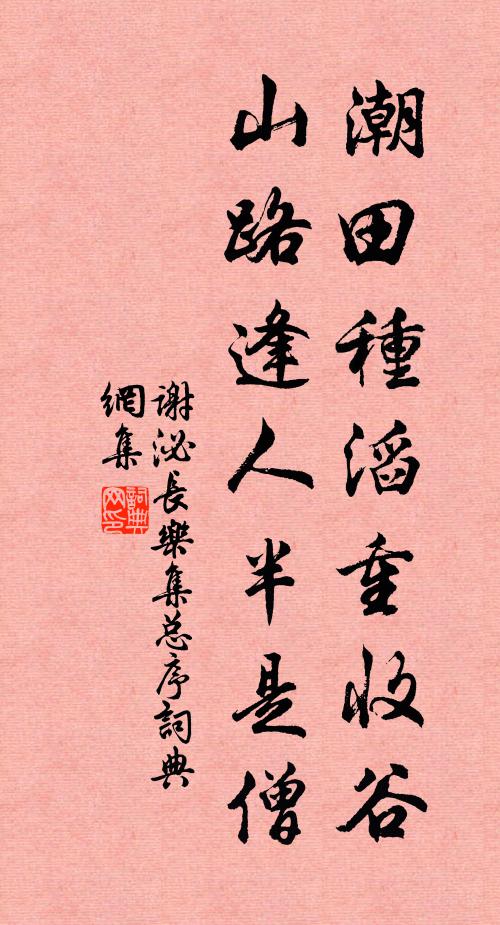 潮田種滔重收谷
山路逢人半是僧
谢泌長樂集总序詞典
網集
詞典
网印